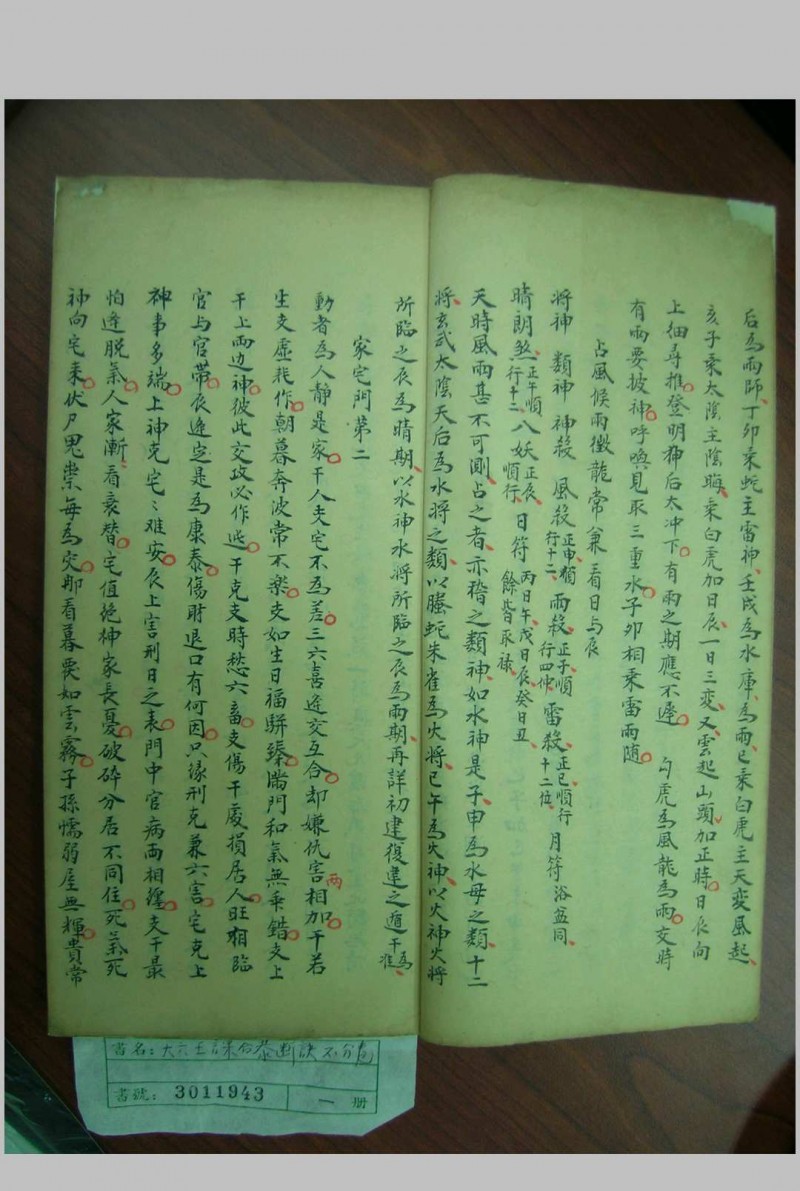 后為雨師、丁卯乘蛇主雷神、壬戌為水庫、為雨、巳乘白虎主天變風起、
亥子乘太陰主陰晦、乘白虎加日辰、一日三變、又雲起山頭、加正時。日辰向
上細尋推。登明神后太冲下。有雨之期應不遲。勾虎為風龍為雨。交時
有雨要披神。呼喚見取三重水。子卯相乘雷雨随。
占風候雨徵龍常兼看日与辰
將神 類神 神殺 風殺正申順行十二、雨殺正子順行四仲、雷殺正巳順行十二位、月符浴盆同、
晴朗煞、正午順行十二、八妖正辰順行、日符丙日午、戊日辰、癸日丑、餘皆取禄、
天時風雨甚不可測、占之者、亦稽之類神、如水神是子申為水母之類、十二
將、玄武太陰天后為水將之類、以螣蛇朱雀為火將、巳午為火神、以火神火將
所臨之辰為晴期、以水神水將所臨之辰為雨期、再詳初建復建之遁干為准、
家宅門第二
動者為人靜是家。干人支宅不為差。三六喜逢交互合。却嫌仇害兩相加。干若
生支虛耗作。朝暮奔波常不樂。支如生日福駢臻。滿門和氣無乖錯。支上
干上兩边神。彼此交攻必作迍。干克支時愁六畜。支傷干處損居人。旺相臨
官与官帶。辰逢定是為康泰。傷財退口有何因。只緣刑克兼六害。宅克上
神事多端。上神克宅宅难安。辰上害刑日之表。門中官病两相纏。支干最
怕逢脱氣。人家漸看衰替。宅值絶神家長憂。破碎分居不同住。死氣死
神向宅来。伏尸鬼祟每為灾。那看暮景如雲霧。子孫懦弱屋無輝。貴常
書名：大六壬
書號：3011943
一册